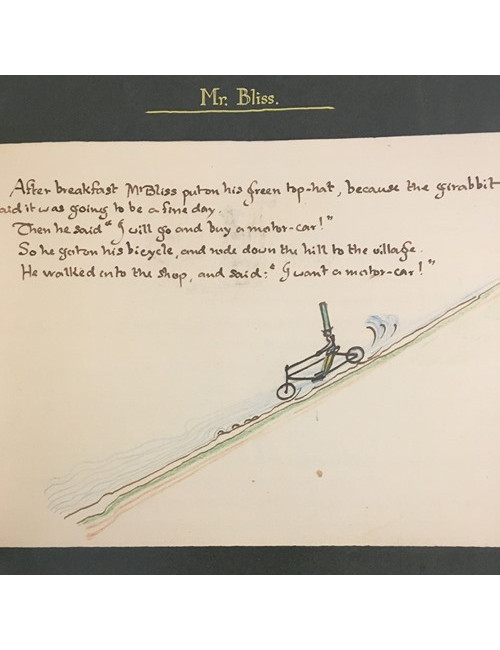 Mr. Bliss.
After breakfast Mr Bliss put on his green top-hat, because the girabbit
said it was going to be a fine day.
Then he said "I will go and buy a motor-car!"
So he got on his bicycle, and rode down the hill to the village.
He walked into the shop, and said: "I want a motor-car!"